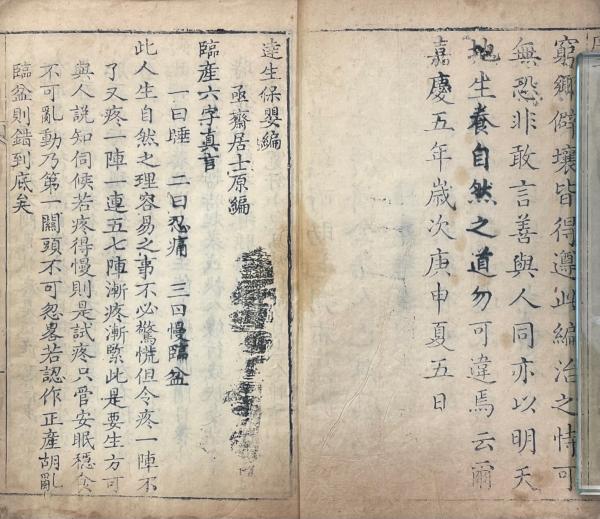 窮鄉僻壤皆得遵此編治之恃可
無恐非敢言善與人同亦以明天
地生養自然之道勿可違焉云爾
嘉慶五年歲次庚申夏五日
達生保嬰編
亟齋居士原編
臨產六字真言
一曰睡 二曰忍痛 三曰慢臨盆
此人生自然之理容易之事不必驚慌但令疼一陣不
了又疼一陣一連五七陣漸疼漸緊此是要生方可
與人説知伺候若疼得慢則是試疼只管安眠穩食
不可亂動乃第一關頭不可忽畧若認作正產胡亂
臨盆則錯到底矣